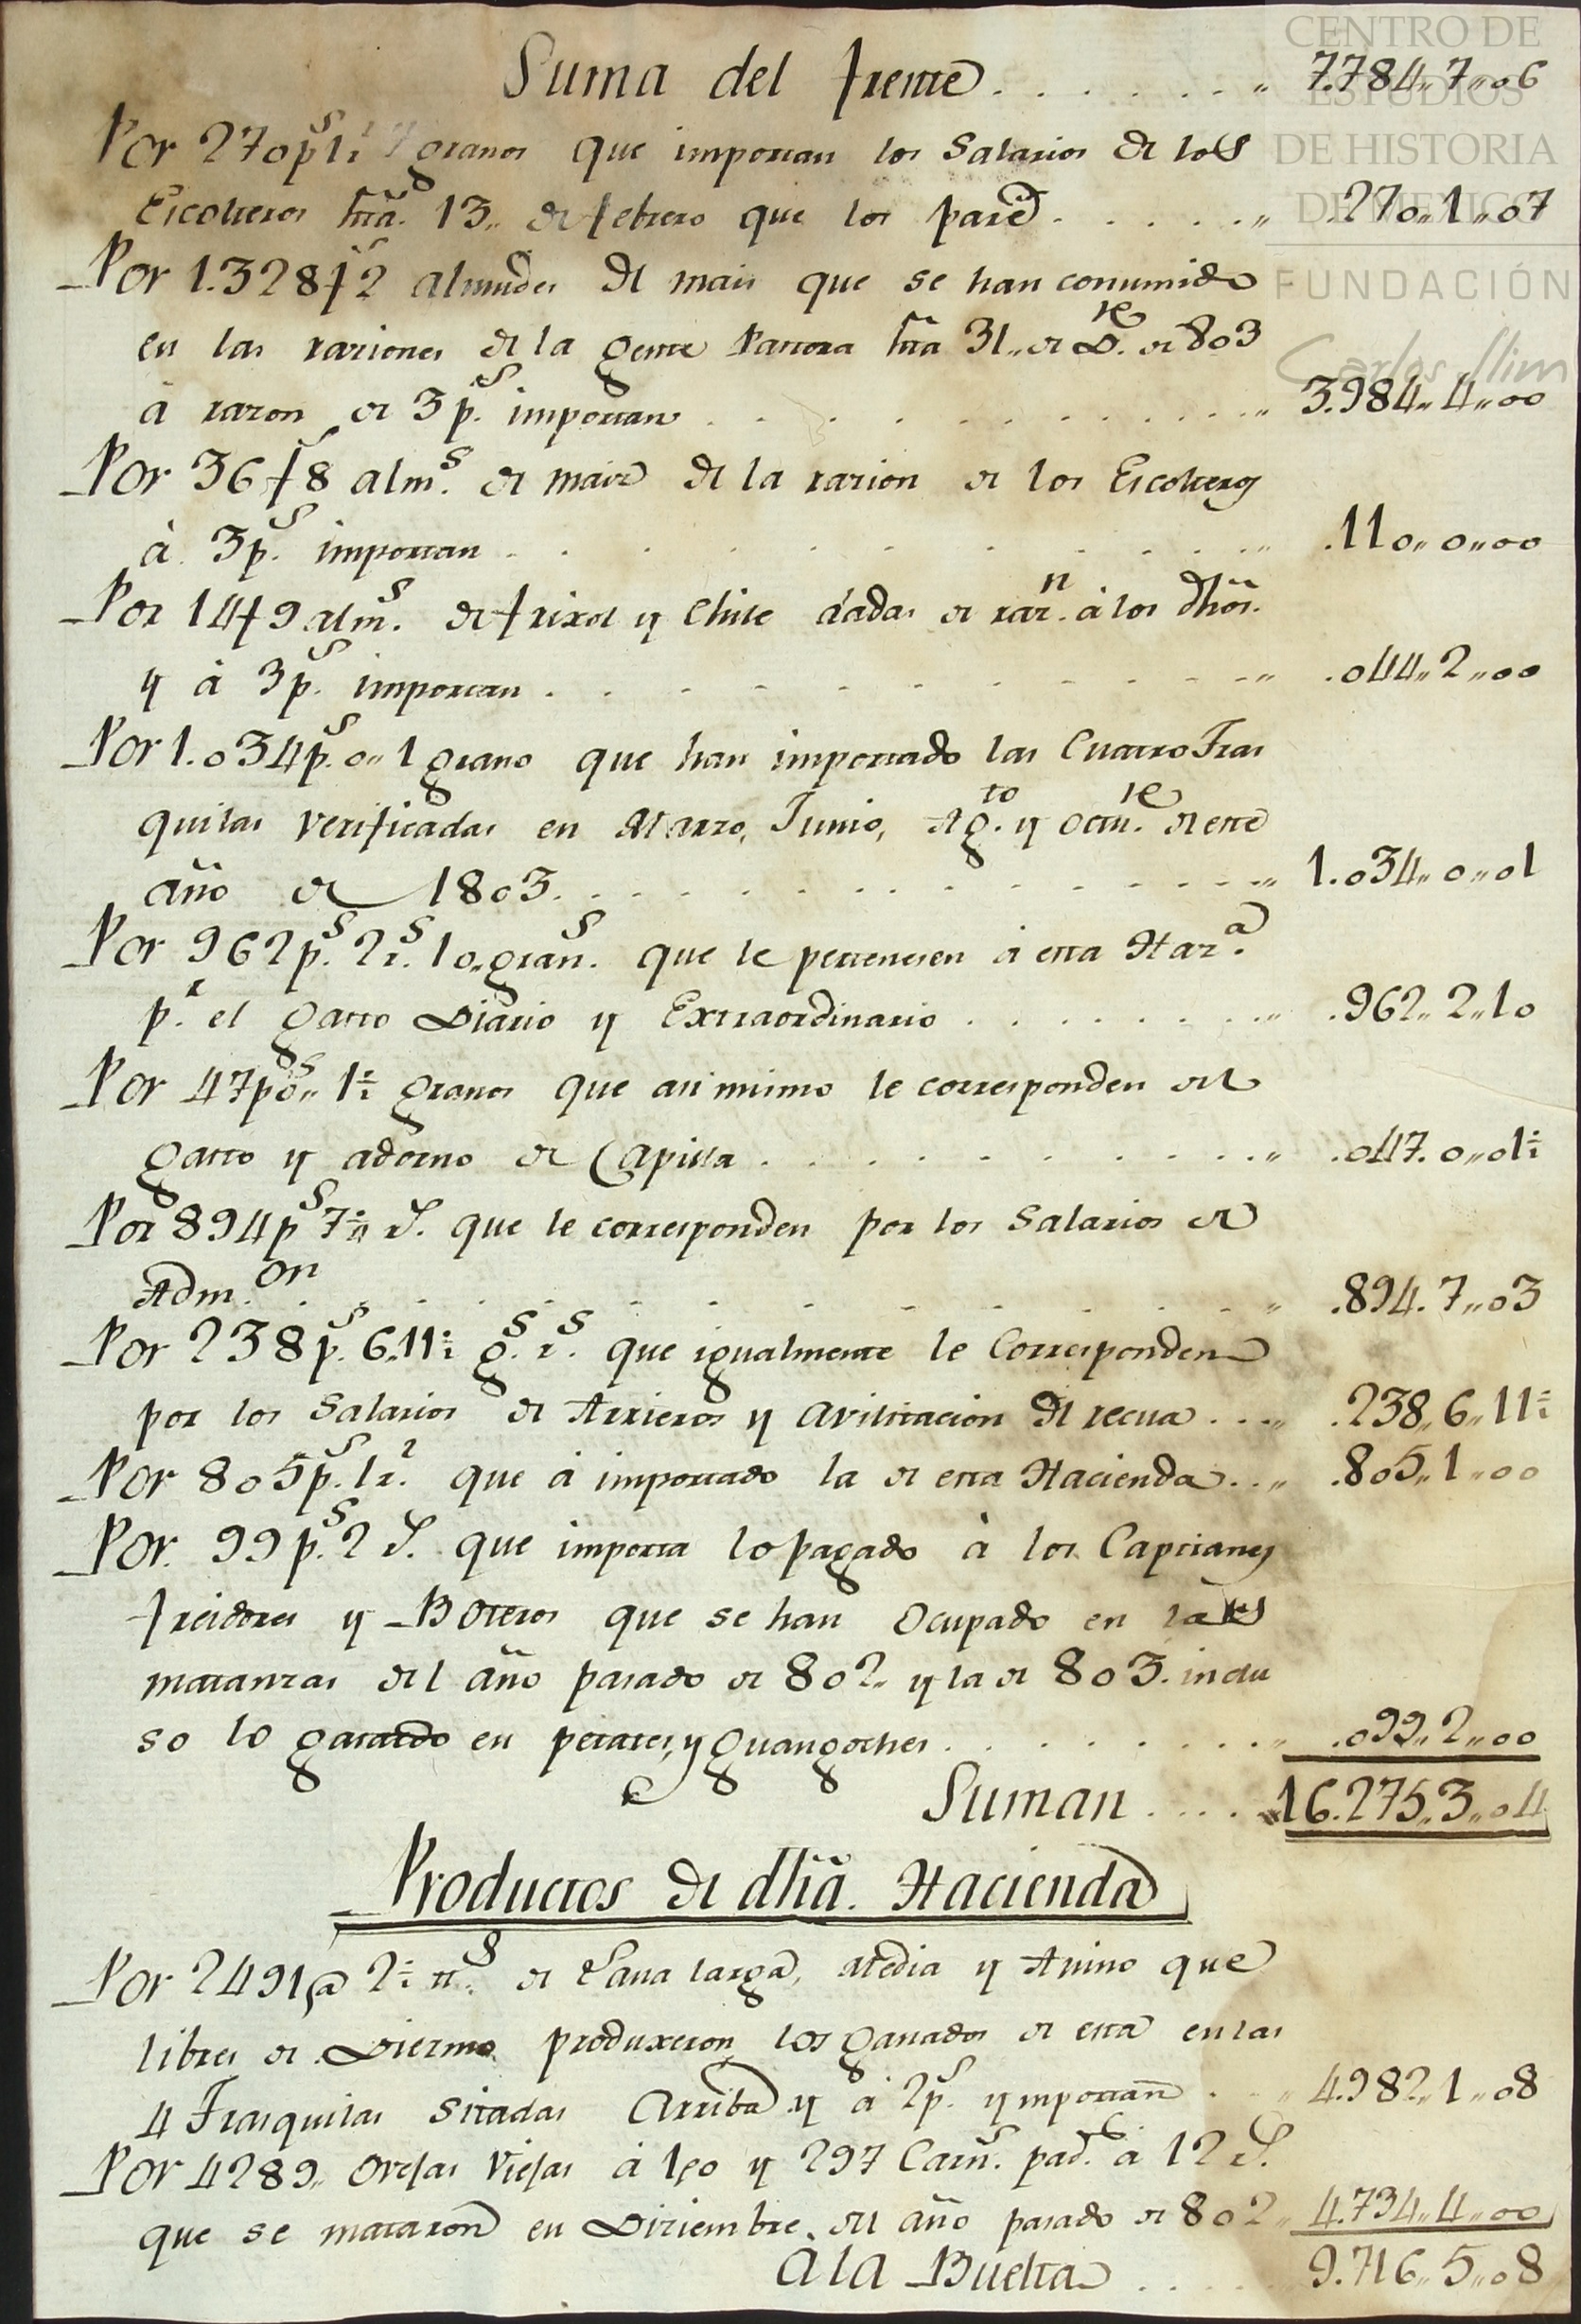 CENTRO DE
ESTUDIOS
DE HISTORIA
DE MEXICO
FUNDACIÓN
Carlos Slim
Suma del frente . . . . . . „ 7.784„ 7„ 06
Por 270 ps 1r 7 granos que importan los Salarios de los
Escolteros hta. 13„ de febrero que los pasé . . . . . „ .270„ 1„ 07
Por 1.328 f 2 almudes de mais que se han consumido
en las raziones de la gente Pastora hta 31„ de Dre. de 803
á razon de 3 ps. importan . . . . . . . . „ 3.984„ 4„ 00
Por 36 f 8 alms. de maiz de la razion de los Escolteros
á 3 ps. importan . . . . . . . . „ .110„ 0„ 00
Por 14 f 9 alms. de frixol y Chile dadas de razn. á los dhõs.
y á 3 ps. importan . . . . . . . . „ .044„ 2„ 00
Por 1.034 ps. 0„ 1 grano que han importado las Cuatro Tras
quilas verificadas en Marzo, Junio, Agto. y Octure. de este
año de 1803 . . . . . . . . „ 1.034„ 0„ 01
Por 962 ps. 2 rs. 10„ grans. que le pertenesen á esta Haza.
pr. el gasto Diario y Extraordinario . . . . . . . „ .962„ 2„ 10
Por 47 ps 0„ 1½ granos que asi mismo le corresponden del
gasto y adorno de Capilla . . . . . . . . „ .047. 0„ 01½
Por 894 ps 7 rs. que le corresponden por los Salarios de
Admon. . . . . . . . . „ .894. 7„ 03
Por 238 ps. 6„ 11½ gs. rs. que igualmente le Corresponden
por los Salarios de Arrieros y avilitacion de recua . . . „ .238„ 6„ 11½
Por 805 ps. 1 rl. que á importado la de esta Hacienda . . „ .805„ 1„ 00
Por. 99 ps. 2 rs. que importa lo pagado à los Capitanes
freidores y Boteros que se han Ocupado en las
matanzas del año pasado de 802„ y la de 803. inclu
so lo gastado en petates, y guangoches . . . . . . . „ .099„ 2„ 00
Suman . . . . 16.275„ 3„ 04
Productos de dhã. Hacienda
Por 2491 @ 2½ tts. de Lana larga, media y Anino que
libres de Diezmo produxeron los ganados de esta en las
4 Trasquilas Sitadas Arriba y á 2 ps. ymportan . . „ 4.982„ 1„ 08
Por 4289„ Ovejas Viejas á 1p0 y 297 Carns. pads. á 12 rs.
que se mataron en Diziembre, del año pasado de 802„ 4.734„ 4„ 00
à la Buelta . . . . 9.716„ 5„ 08